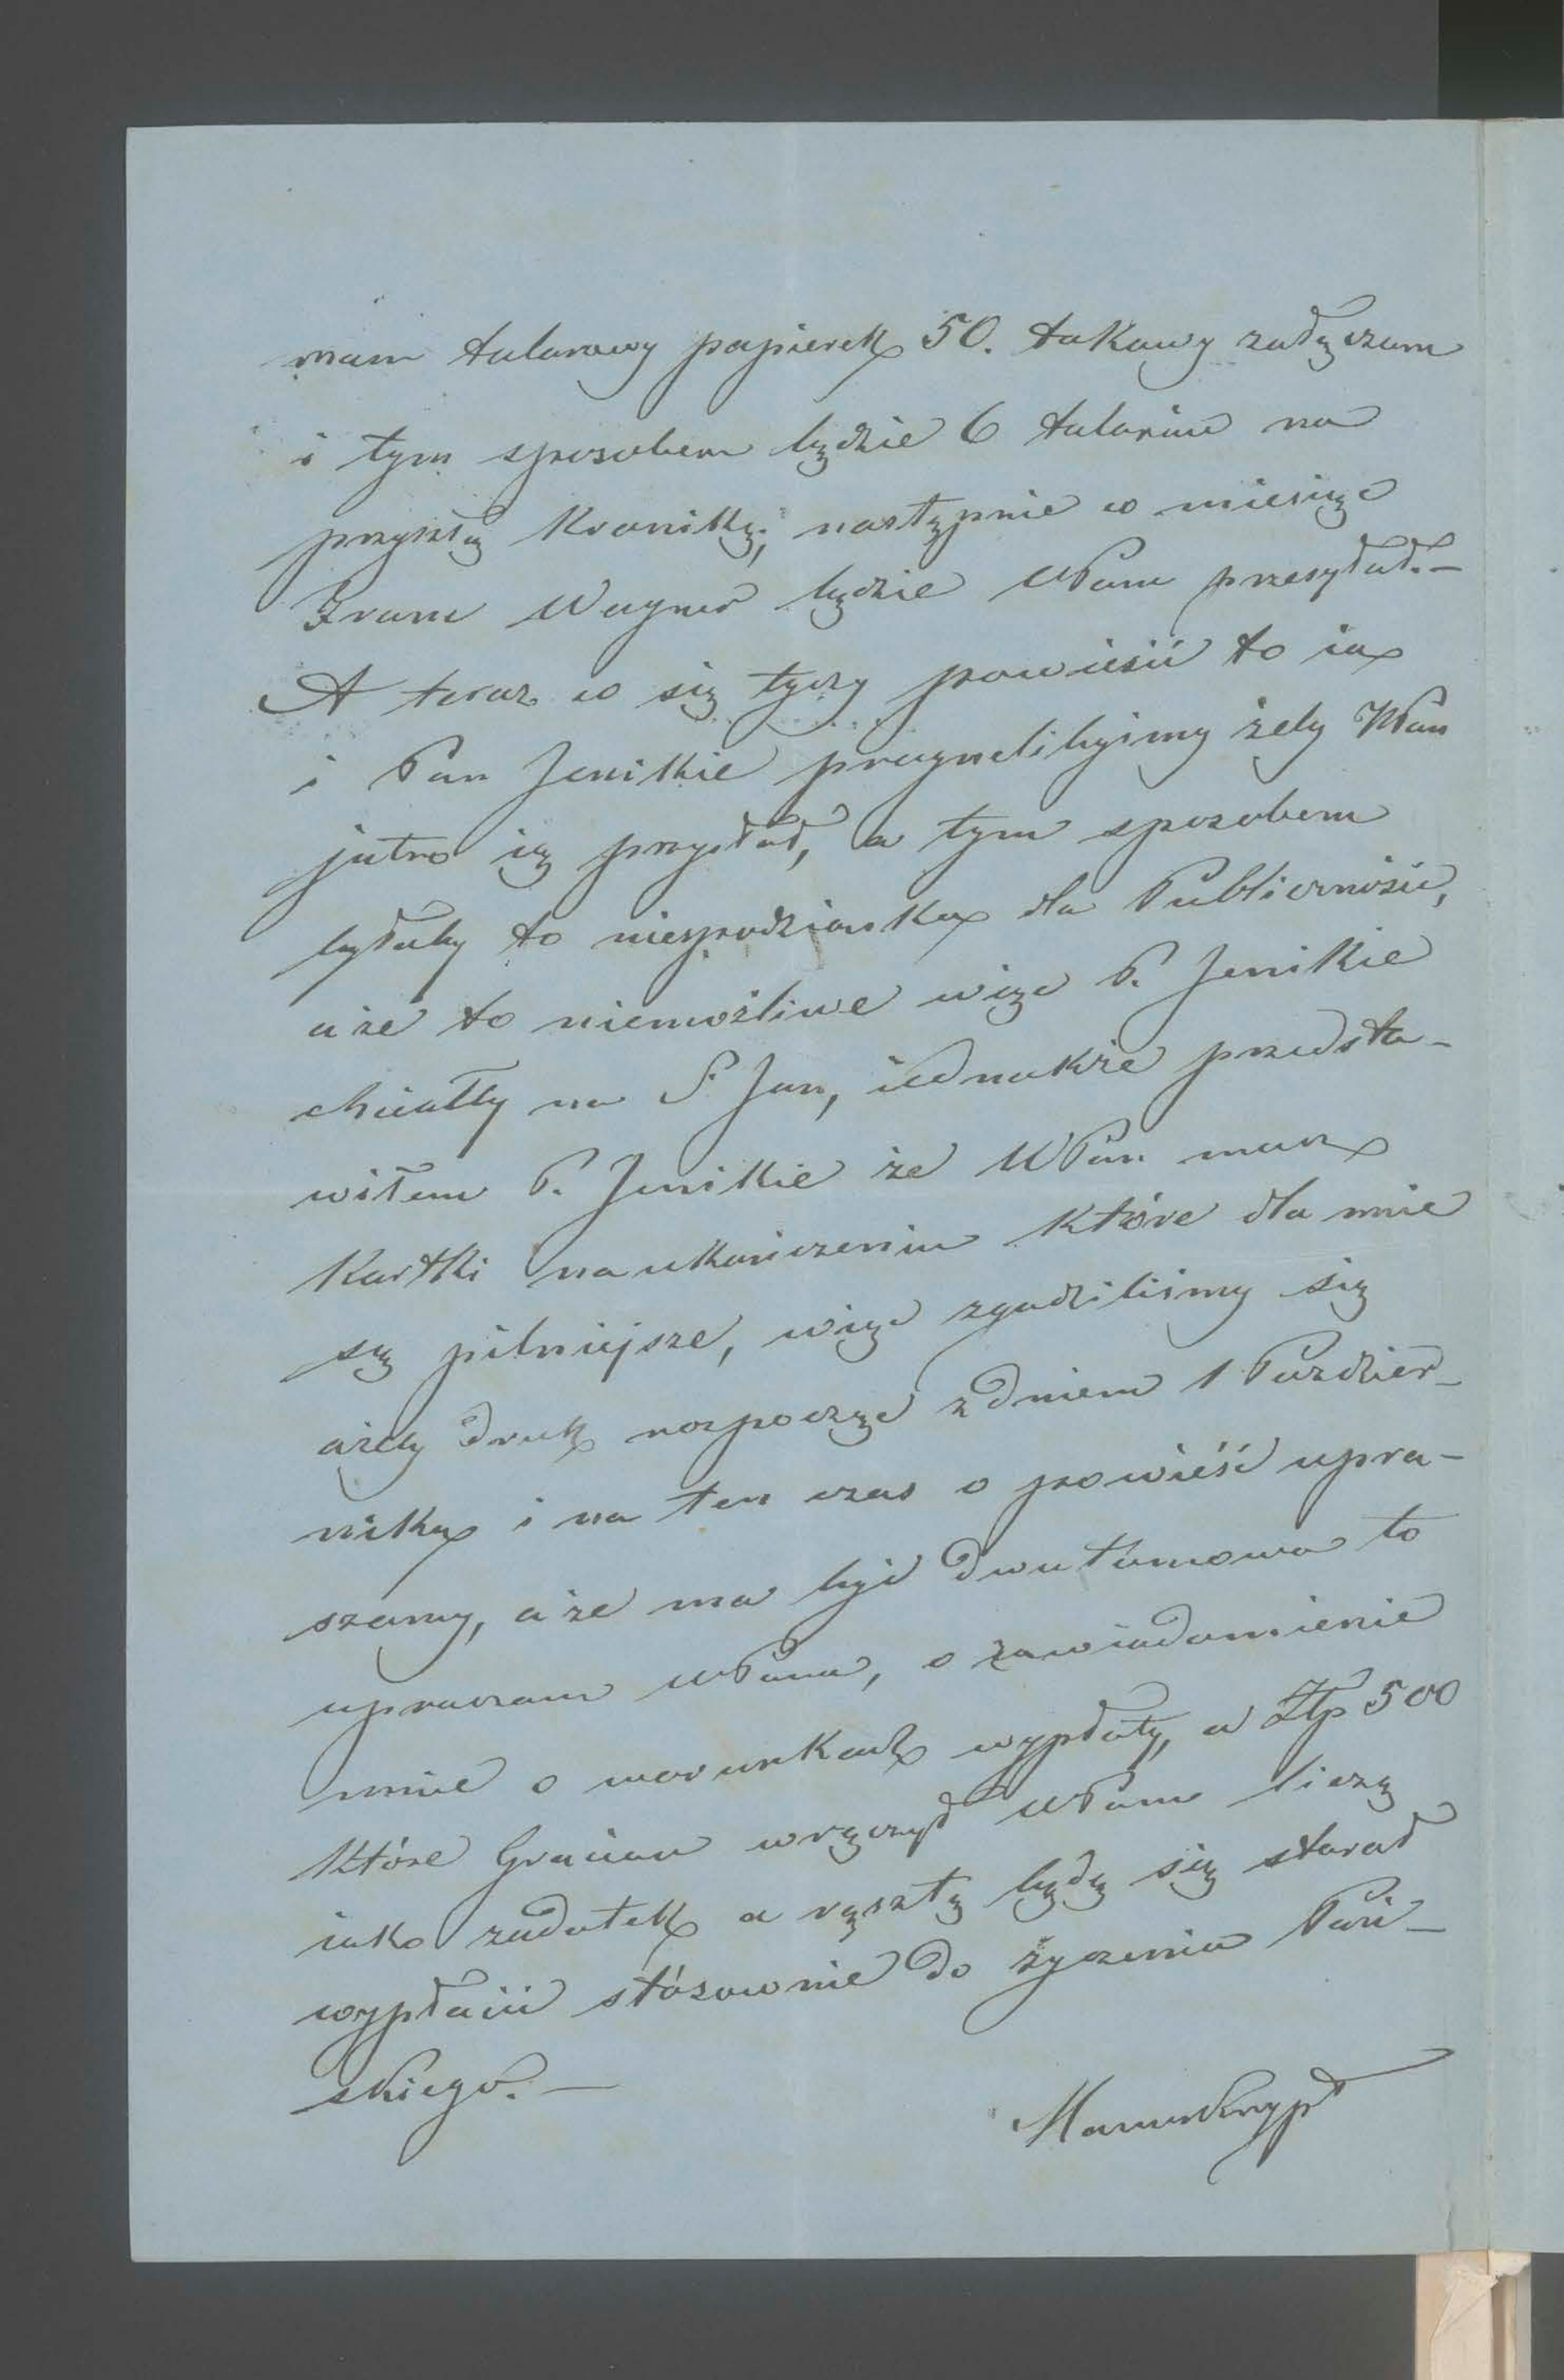 mam talarowy papierek 50. takowy załączam
i tym sposobem będzie 6 talarów na
przyszłą Kronikę; następnie co miesiąc
Fran Wagner będzie WPanu przesyłał.—
A teraz co się tyczy powieści to ia
i Pan Jenikie pragnelibyimy żeby WPan
jutro ią przysłał, a tym sposobem
byłaby to niespodzianka dla Publiczności,
a że to niemożliwe więc P. Jenikie
chciałby na S. Jan, iednakże przedsta-
wiłem P. Jenikie że WPan masz
Kartki na ukończeniu które dla mnie
są pilniejsze, więc zgodziliśmy się
ażeby druk rozpocząć z dniem 1 Paździer-
nika i na ten czas o powieść upra-
szamy, a że ma być dwutomowa to
upraszam WPana, o zawiadomienie
mnie o warunkach wypłaty, a Złp 500
które Gracian wręczył WPanu liczę
iako zadatek a resztę będę się starał
wypłacić stósownie do życzenia Pań-
skiego.—
Manuskrypt